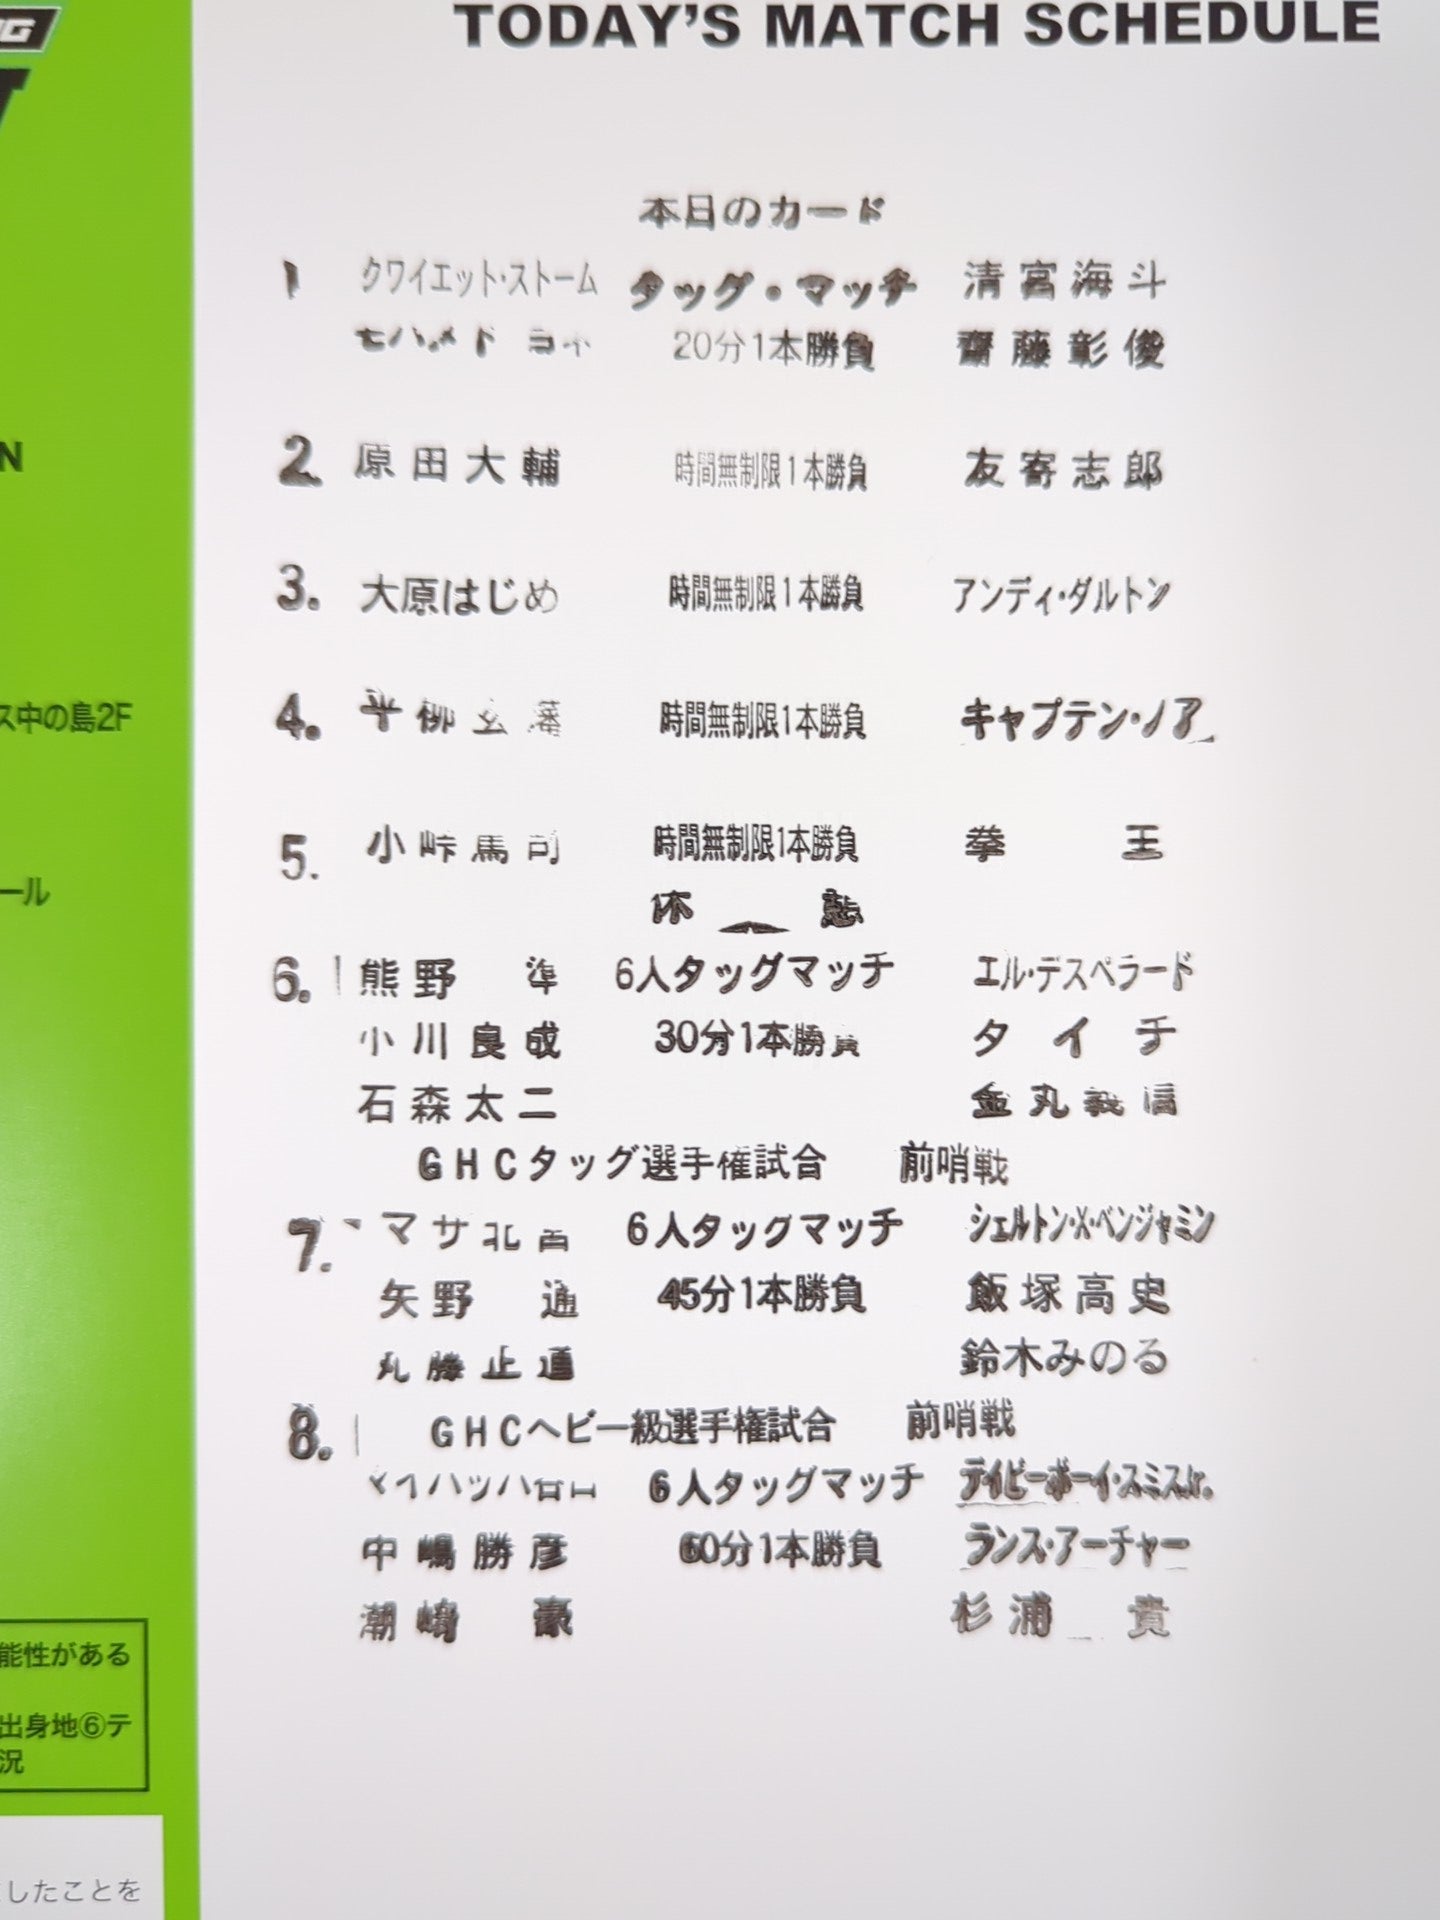 TODAY'S MATCH SCHEDULE
本日のカード
1 クワイエット・ストーム タッグ・マッチ 清宮海斗
モハメド ヨネ 20分1本勝負 齋藤彰俊
2. 原田大輔 時間無制限1本勝負 友寄志郎
3. 大原はじめ 時間無制限1本勝負 アンディ・ダルトン
4. 平柳玄藩 時間無制限1本勝負 キャプテン・ノア
5. 小峠篤司 時間無制限1本勝負 拳王
休憩
6. 熊野準 6人タッグマッチ エル・デスペラード
小川良成 30分1本勝負 タイチ
石森太二 金丸義信
GHCタッグ選手権試合 前哨戦
7. マサ北宮 6人タッグマッチ シェルトン・X・ベンジャミン
矢野通 45分1本勝負 飯塚高史
丸藤正道 鈴木みのる
8. GHCヘビー級選手権試合 前哨戦
マイバッハ谷口 6人タッグマッチ デイビーボーイ・スミスJr.
中嶋勝彦 60分1本勝負 ランス・アーチャー
潮崎豪 杉浦貴
N
ス中の島2F
ール
能性がある
出身地⑥テ
況
したことを